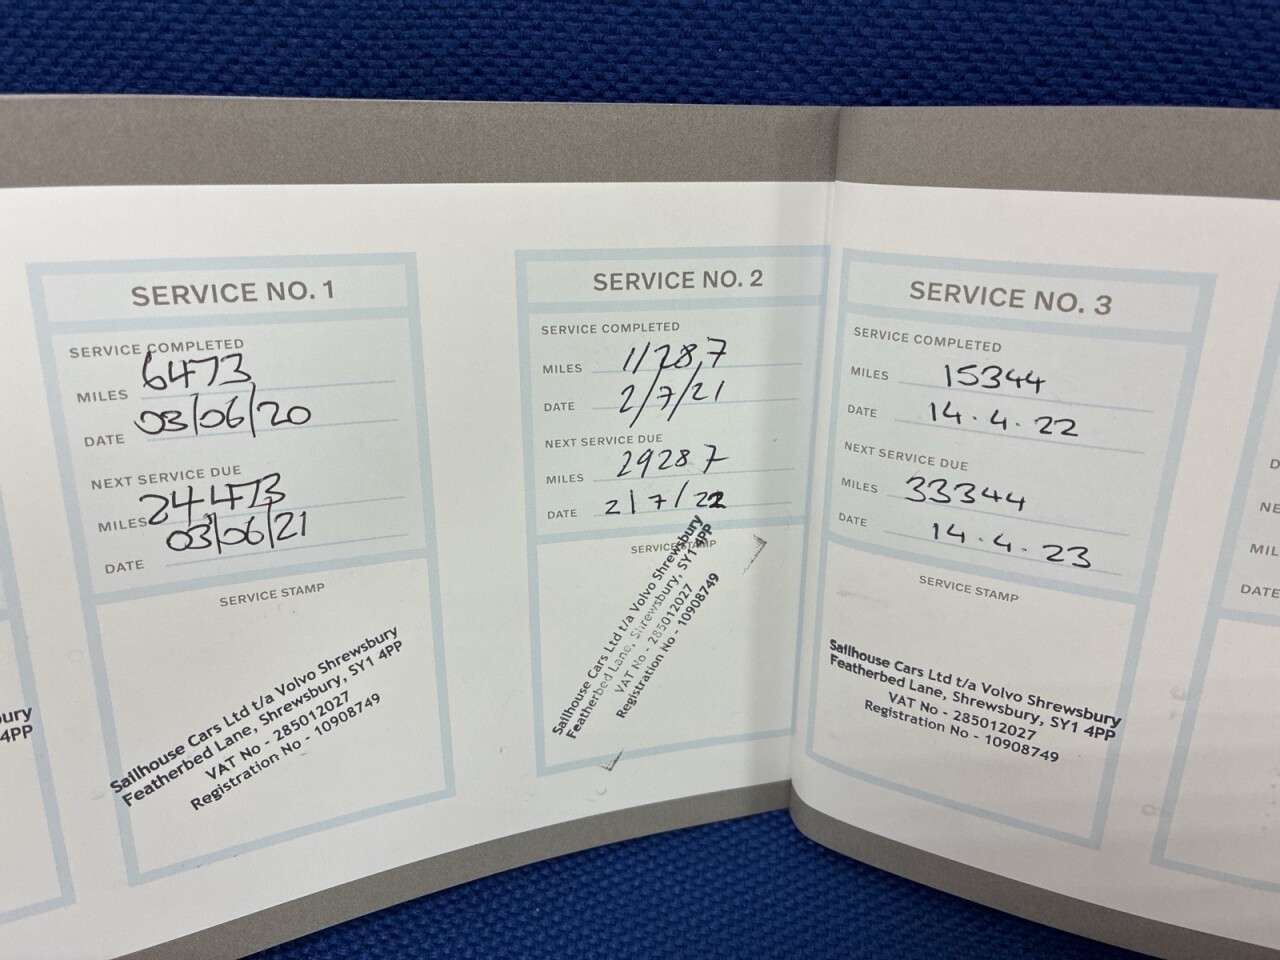 SERVICE NO. 1
SERVICE COMPLETED
MILES 6473
DATE 03/06/20
NEXT SERVICE DUE
MILES 24,473
DATE 03/06/21
SERVICE STAMP
Sailhouse Cars Ltd t/a Volvo Shrewsbury
Featherbed Lane, Shrewsbury, SY1 4PP
VAT No - 285012027
Registration No - 10908749
SERVICE NO. 2
SERVICE COMPLETED
MILES 11287
DATE 2/7/21
NEXT SERVICE DUE
MILES 29287
DATE 2/7/22
SERVICE STAMP
Sailhouse Cars Ltd t/a Volvo Shrewsbury
Featherbed Lane, Shrewsbury, SY1 4PP
VAT No - 285012027
Registration No - 10908749
SERVICE NO. 3
SERVICE COMPLETED
MILES 15344
DATE 14.4.22
NEXT SERVICE DUE
MILES 33344
DATE 14.4.23
SERVICE STAMP
Sailhouse Cars Ltd t/a Volvo Shrewsbury
Featherbed Lane, Shrewsbury, SY1 4PP
VAT No - 285012027
Registration No - 10908749
ury
4PP
D
NE
MIL
DATE